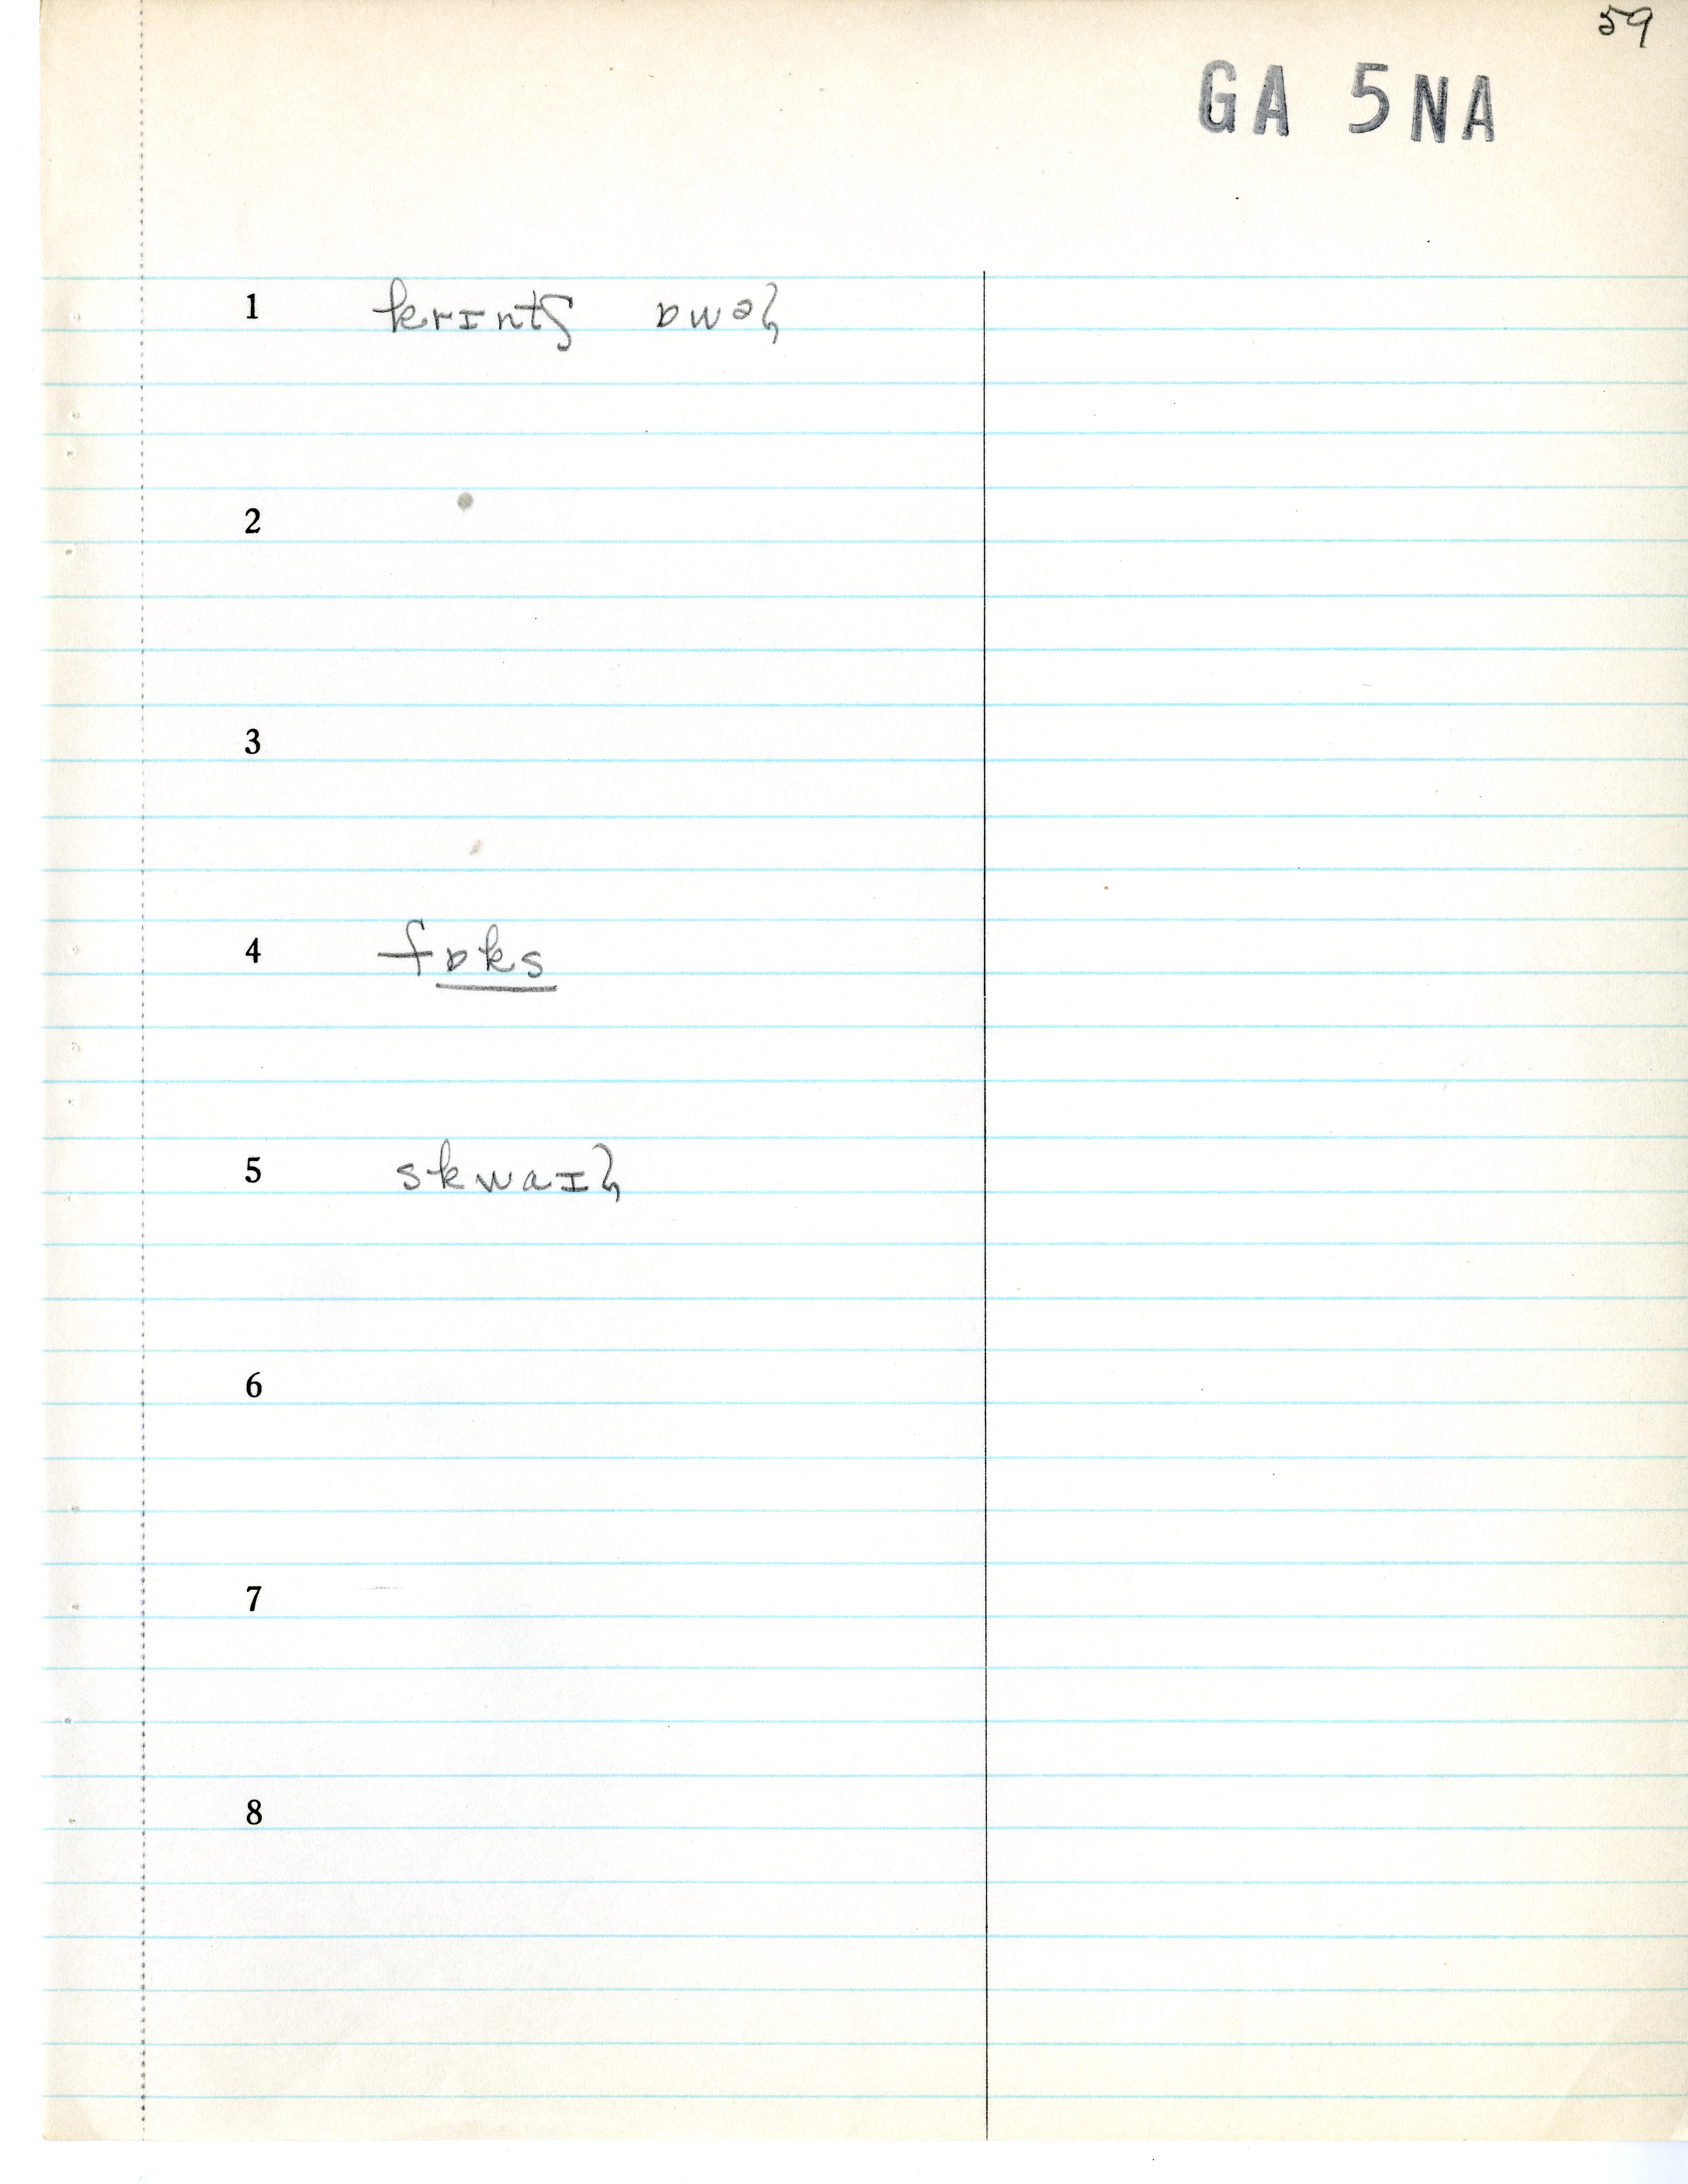 59
GA 5NA
1 krɪntʃ ɒwəɫ
2
3
4 fɒks
5 skwaɪɫ
6
7
8